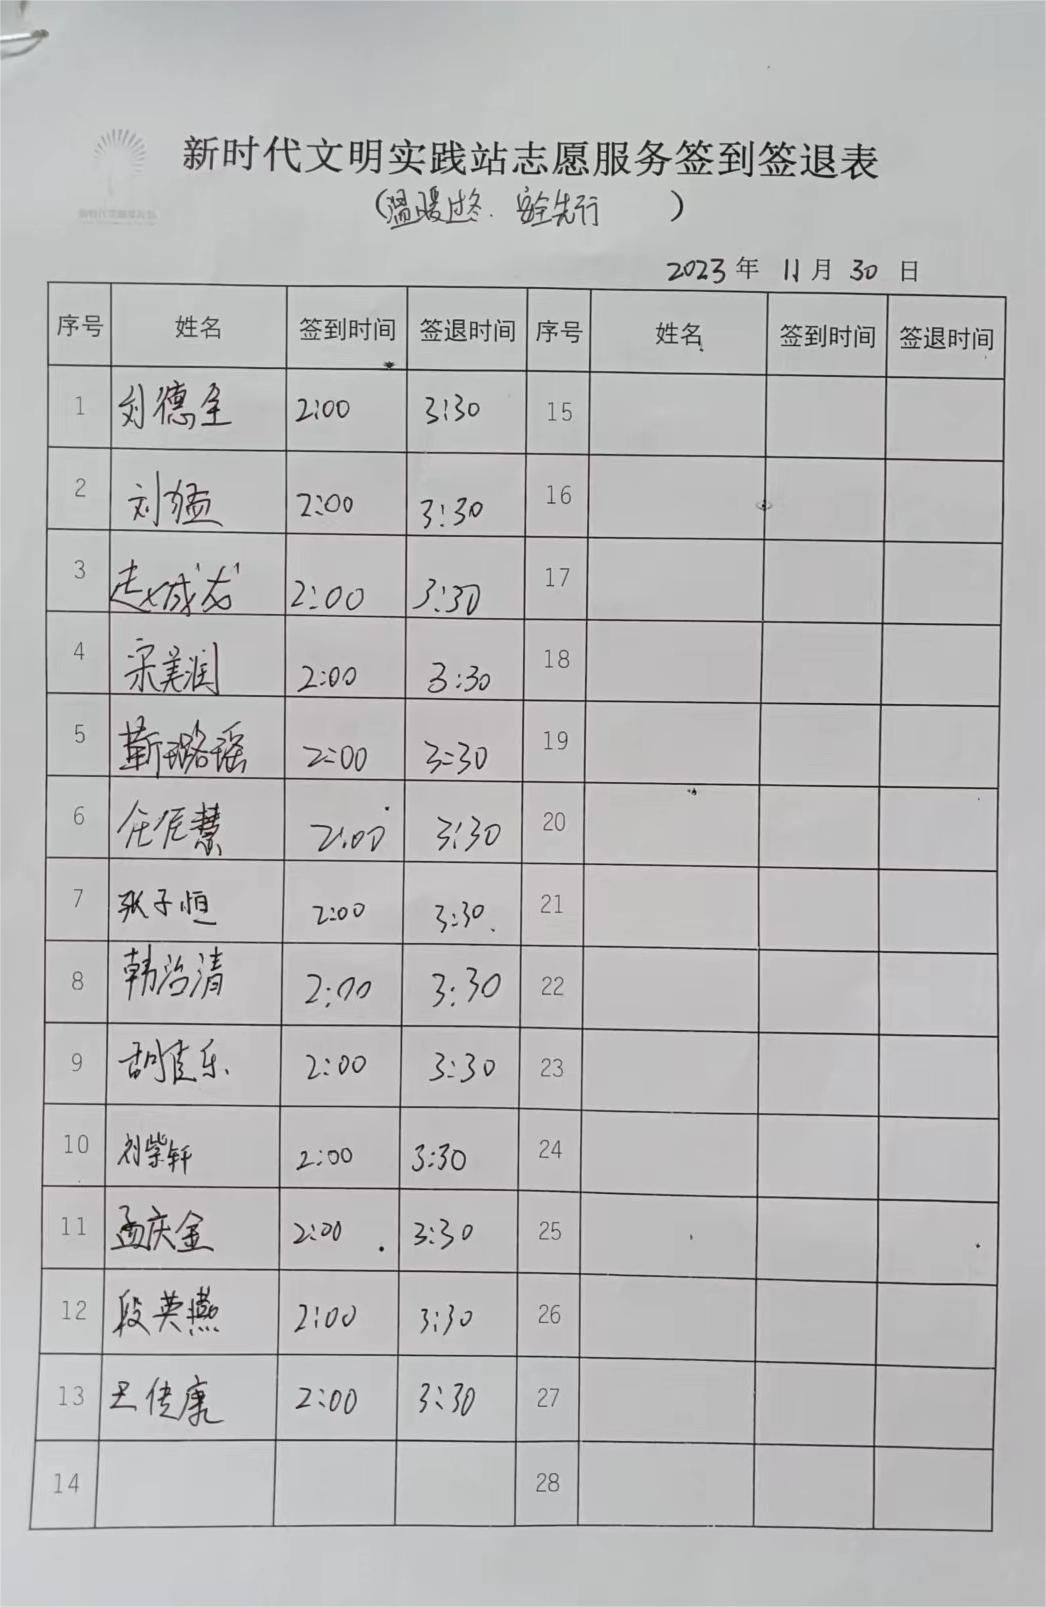 新时代文明实践站志愿服务签到签退表
(温暖过冬.安全先行 )
2023年 11月 30 日
序号 姓名 签到时间 签退时间 序号 姓名 签到时间 签退时间
1 刘德全 2:00 3:30 15
2 刘猛 2:00 3:30 16
3 赵成龙 2:00 3:30 17
4 宋美润 2:00 3:30 18
5 靳璐瑶 2:00 3:30 19
6 2:00 3:30 20
7 张子恒 2:00 3:30 21
8 韩治清 2:00 3:30 22
9 胡佳乐 2:00 3:30 23
10 刘紫轩 2:00 3:30 24
11 孟庆金 2:00 3:30 25
12 段英燕 2:00 3:30 26
13 2:00 3:30 27
14 28